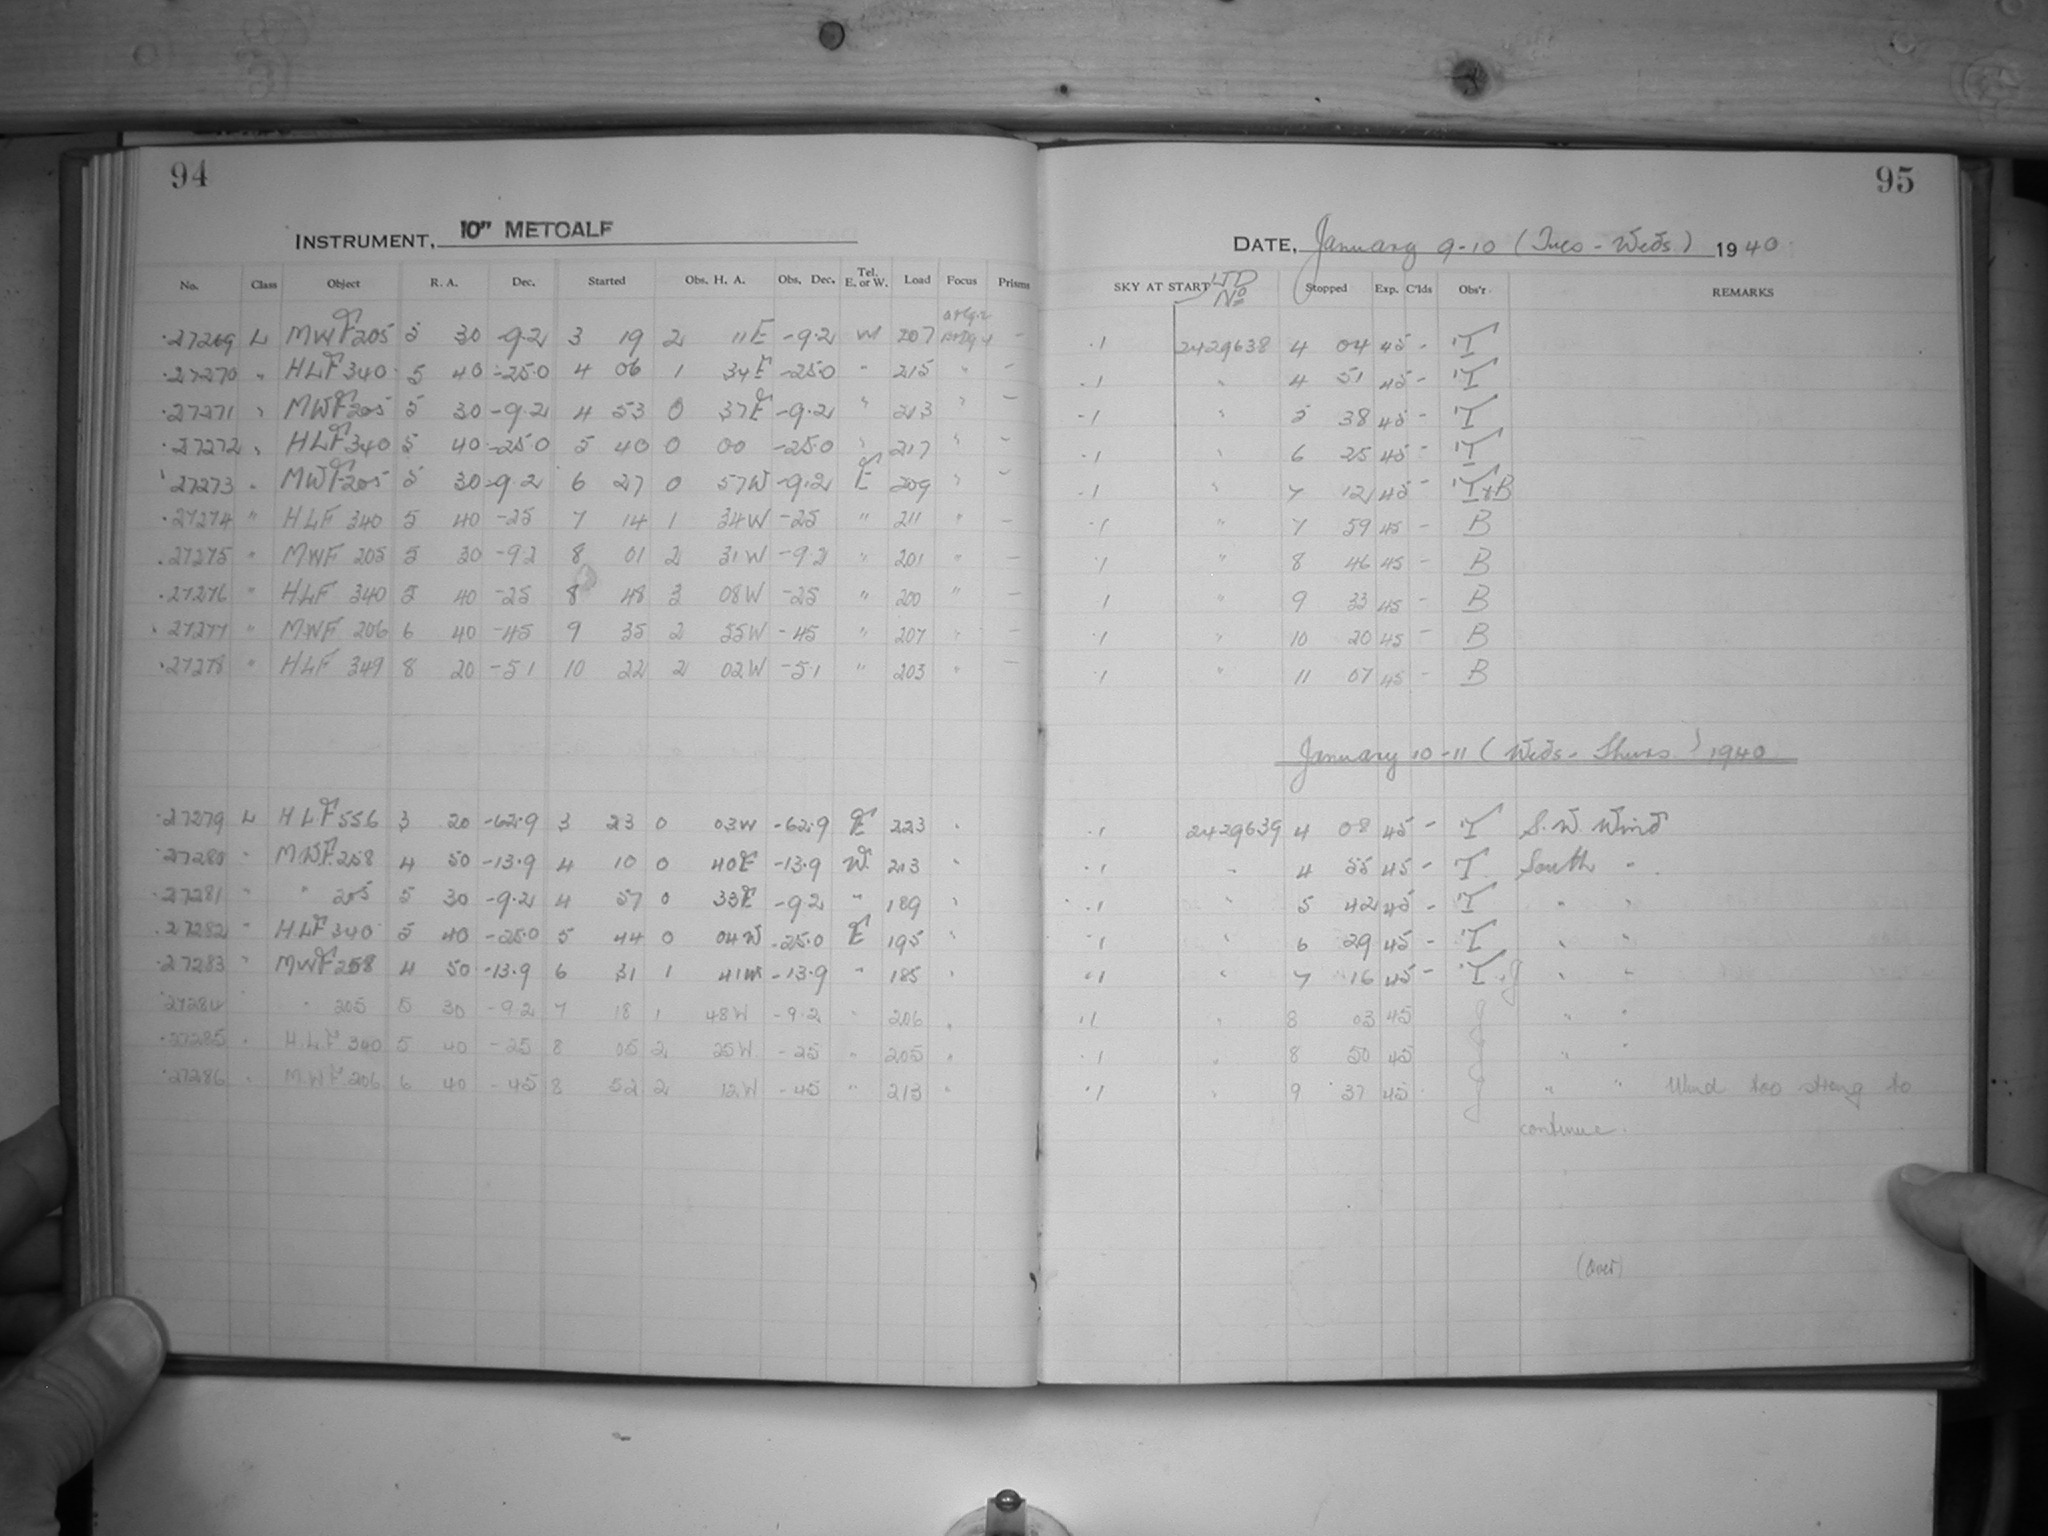 94
95
INSTRUMENT, 10" METCALF
DATE, January 9-10 (Tues - Weds.) 1940
No. Class Object R. A. Dec. Started Obs. H. A. Obs. Dec. Tel. E. or W. Load Focus Prisms SKY AT START JD No Stopped Exp. C'lds Obs'r. REMARKS
27269 L MWF 205 5 30 -9.2 3 19 2 11E -9.2 W 207 - .1 2429638 4 04 45 - T
27270 " HLF 340 5 40 -25.0 4 06 1 34E -25.0 " 215 " - .1 " 4 51 45 - T
27271 " MWF 205 5 30 -9.2 4 53 0 37E -9.2 " 213 " - .1 " 5 38 45 - T
27272 " HLF 340 5 40 -25.0 5 40 0 00 -25.0 " 217 " - .1 " 6 25 45 - T
27273 " MWF 205 5 30 -9.2 6 27 0 57W -9.2 E 209 " - .1 " 7 12 45 - T&B
27274 " HLF 340 5 40 -25 7 14 1 34W -25 " 211 " - .1 " 7 59 45 - B
27275 " MWF 205 5 30 -9.2 8 01 2 31W -9.2 " 201 " - .1 " 8 46 45 - B
27276 " HLF 340 5 40 -25 8 48 3 08W -25 " 200 " - .1 " 9 33 45 - B
27277 " MWF 206 6 40 -45 9 35 2 55W -45 " 207 " - .1 " 10 20 45 - B
27278 " HLF 349 8 20 -51 10 22 2 02W -51 " 203 " - .1 " 11 07 45 - B
January 10-11 (Weds - Thurs) 1940
27279 L HLF 556 3 20 -62.9 3 23 0 03W -62.9 E 223 " .1 2429639 4 08 45 - T S.W. Wind
27280 " MWF 258 4 50 -13.9 4 10 0 40E -13.9 W. 213 " .1 " 4 55 45 - T South "
27281 " " 205 5 30 -9.2 4 57 0 33E -9.2 " 189 " .1 " 5 42 45 - T " "
27282 " HLF 340 5 40 -25.0 5 44 0 04W -25.0 E 195 " .1 " 6 29 45 - T " "
27283 " MWF 258 4 50 -13.9 6 31 1 41W -13.9 " 185 " .1 " 7 16 45 - T.J " "
27284 " 205 5 30 -9.2 7 18 1 48W -9.2 " 206 " .1 " 8 03 45 J " "
27285 " HLF 340 5 40 -25 8 05 2 25W -25 " 205 " .1 " 8 50 45 J " "
27286 " MWF 206 6 40 -45 8 52 2 12W -45 " 213 " .1 " 9 37 45 J " " Wind too strong to
continue.
(Over)